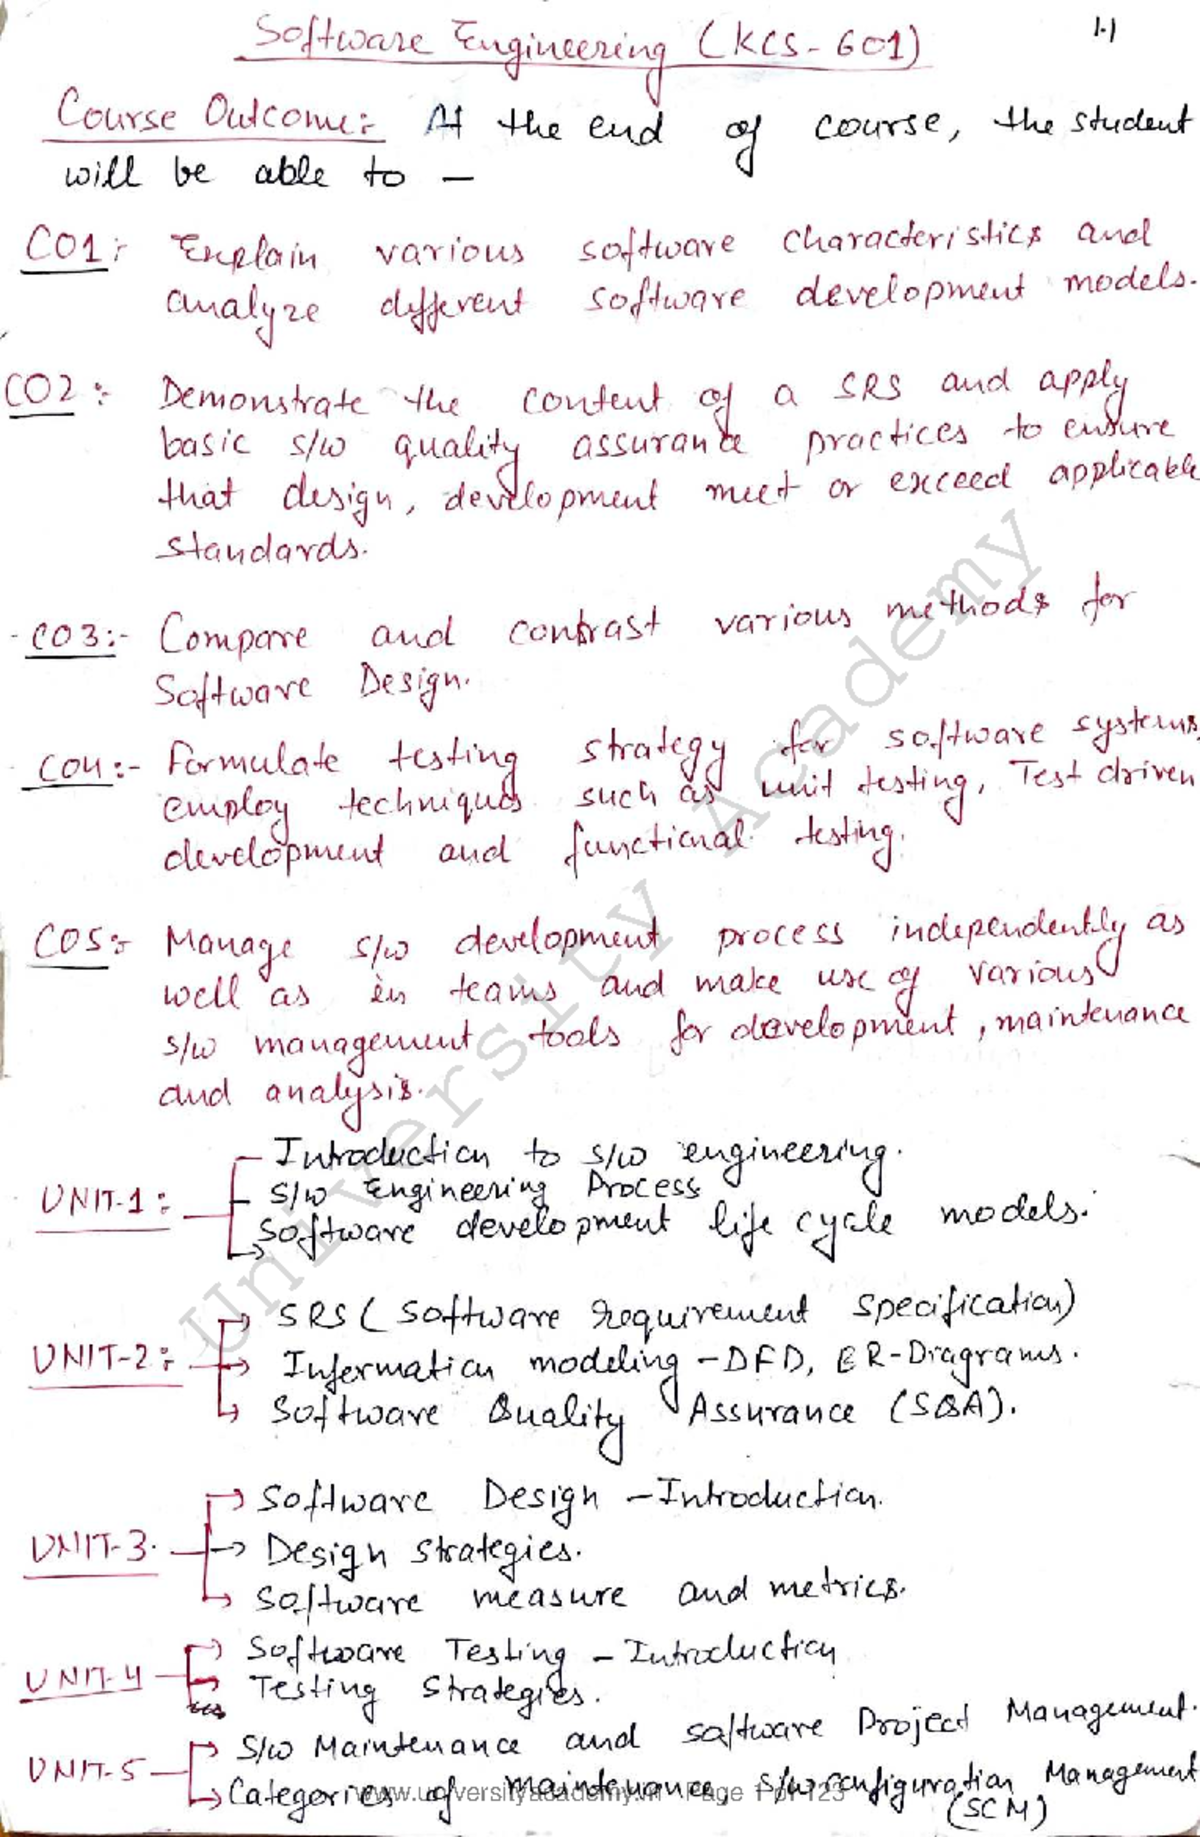 Software Engineering (KCS-601)
1.1
Course Outcome:- At the end of course, the student
will be able to -
CO1:- Explain various software characteristics and
analyze different software development models.
CO2:- Demonstrate the content of a SRS and apply
basic s/w quality assurance practices to ensure
that design, development meet or exceed applicable
standards.
CO3:- Compare and contrast various methods for
Software Design.
CO4:- Formulate testing strategy for software systems,
employ techniques such as unit testing, Test driven
development and functional testing.
CO5:- Manage s/w development process independently as
well as in teams and make use of various
s/w management tools for development, maintenance
and analysis.
Introduction to s/w engineering.
UNIT-1:- S/W Engineering Process
Software development life cycle models.
SRS (Software requirement specification)
UNIT-2:- Information modeling - DFD, ER-Diagrams.
Software Quality Assurance (SQA).
Software Design - Introduction.
UNIT-3. Design Strategies.
Software measure and metrics.
Software Testing - Introduction
UNIT-4 Testing Strategies.
S/W Maintenance and software Project Management.
UNIT-5
Categories of maintenance, s/w configuration Management
(SCM)
University Academy
www.universityacademy.in Page 1 of 123